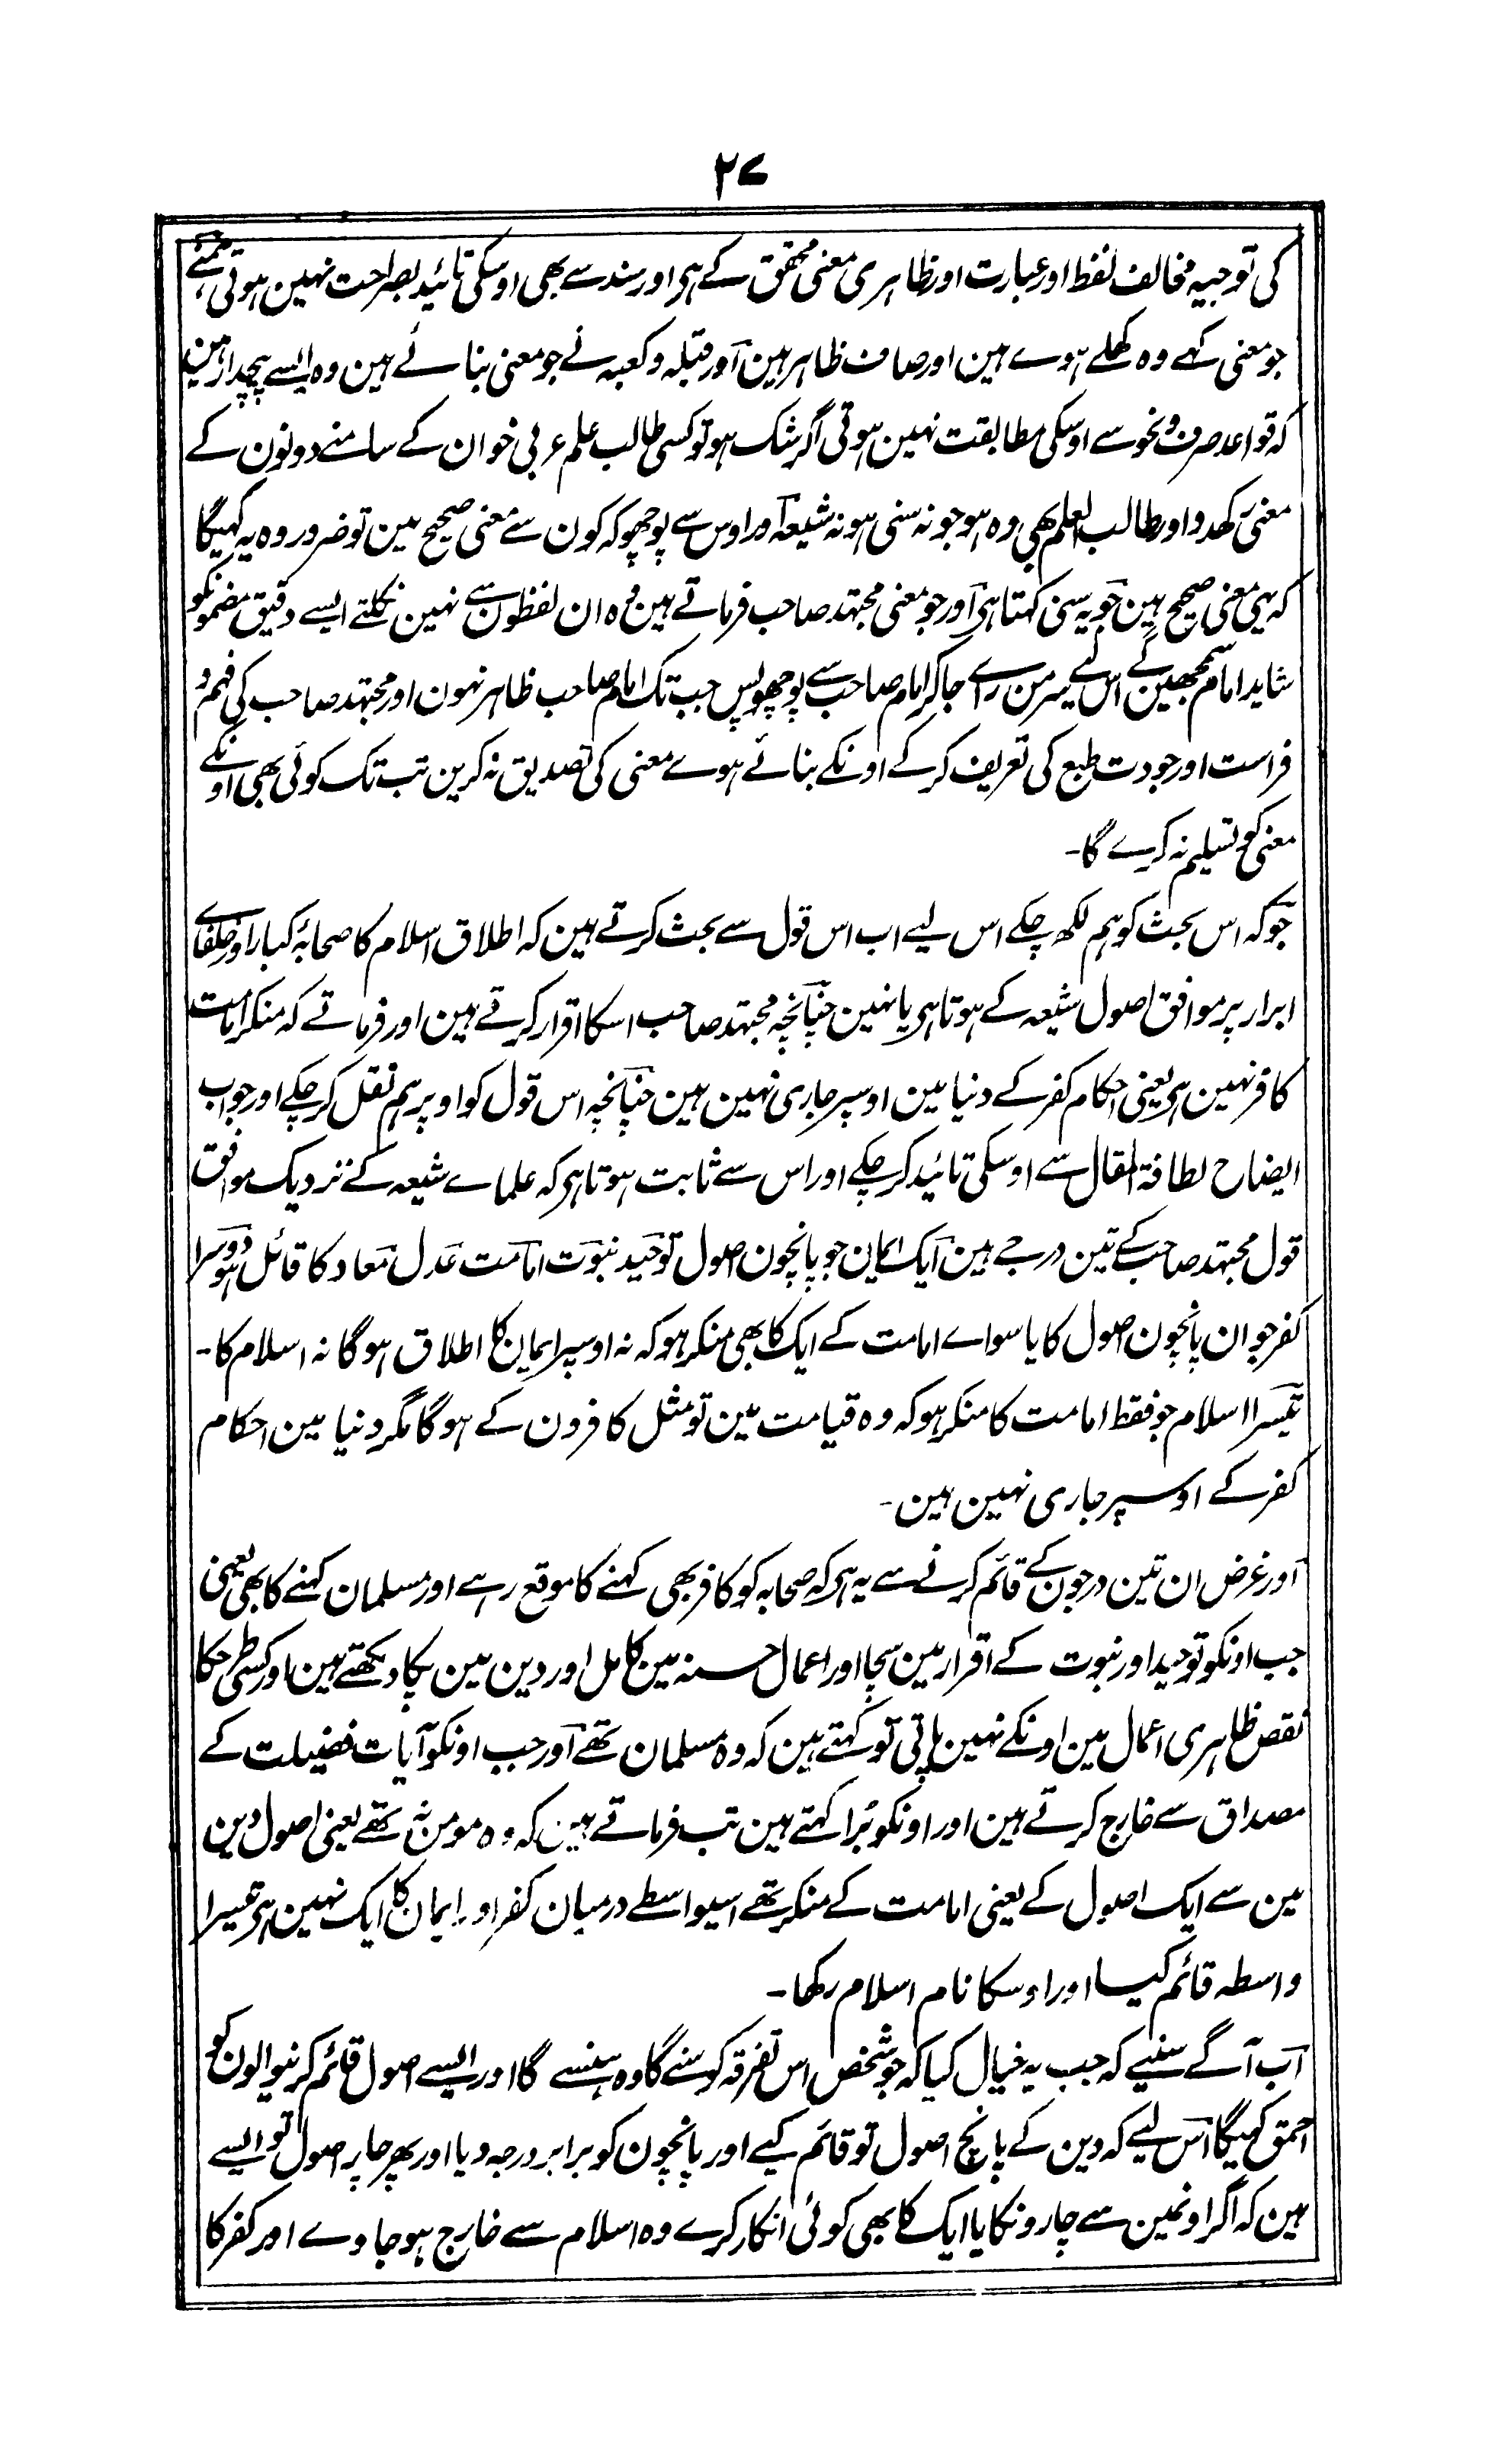 ۲۷
کی توجیہ مخالف لفظ اور عبارت اور ظاہری معنی محقق کے ہی اور سند سے بھی اوسکی تائید بصراحت نہین ہوتی ہمنے
جو معنی کہے وہ کھلے ہوے ہین اور صاف ظاہر ہین اور قبلہ وکعبہ نے جو معنی بنائے ہین وہ ایسے پیچدار ہین
کہ قواعد صرف ونحو سے اوسکی مطابقت نہین ہوتی اگر شک ہو تو کسی طالب علم عربی خوان کے سامنے دونون کے
معنی رکھدو اور طالب العلم بھی وہ ہو جو نہ سنی ہو نہ شیعہ اور اوس سے پوچھو کہ کون سے معنی صحیح ہین تو ضرور وہ یہ کہیگا
کہ یہی معنی صحیح ہین جو یہ سنی کہتا ہی اور جو معنی مجتہد صاحب فرماتے ہین وہ ان لفظون سے نہین نکلتے ایسے دقیق مضمونکو
شاید امام سمجھین گے اس لیے سرمن راے جا کر امام صاحب سے پوچھو پس جب تک امام صاحب ظاہر نہون اور مجتہد صاحب کی فہم و
فراست اور جودت طبع کی تعریف کر کے اونکے بنائے ہوے معنی کی تصدیق نہ کرین تب تک کوئی بھی اونکے
معنی کو تسلیم نہ کرے گا۔
جو کہ اس بحث کو ہم لکھ چکے اس لیے اب اس قول سے بحث کرتے ہین کہ اطلاق اسلام کا صحابۂ کبار اور خلفاے
ابرار پر موافق اصول شیعہ کے ہوتا ہی یا نہین چنانچہ مجتہد صاحب اسکا اقرار کرتے ہین اور فرماتے کہ منکر امامت
کافر نہین ہی یعنی احکام کفر کے دنیا مین اوسپر جاری نہین ہین چنانچہ اس قول کو اوپر ہم نقل کر چکے اور جواب
ایضاح لطافۃ المقال سے اوسکی تائید کر چکے اور اس سے ثابت ہوتا ہی کہ علماے شیعہ کے نزدیک موافق
قول مجتہد صاحب کے تین درجے ہین ایک ایمان جو پانچون اصول توحید نبوت امامت عدل معاد کا قائل ہو دوسرا
کفر جو ان پانچون اصول کا یا سواے امامت کے ایک کا بھی منکر ہو کہ نہ اوسپر ایمان کا اطلاق ہوگا نہ اسلام کا۔
تیسرا اسلام جو فقط امامت کا منکر ہو کہ وہ قیامت مین تو مثل کافرون کے ہوگا مگر دنیا مین احکام
کفر کے اوسپر جاری نہین ہین۔
اور غرض ان تین درجون کے قائم کرنے سے یہ ہی کہ صحابہ کو کافر بھی کہنے کا موقع رہے اور مسلمان کہنے کا بھی یعنی
جب اونکو توحید اور نبوت کے اقرار مین سچا اور اعمال حسنہ مین کامل اور دین مین پکا دیکھتے ہین اور کسی طرحکا
نقص ظاہری اعمال مین اونکے نہین پاتی تو کہتے ہین کہ وہ مسلمان تھے اور جب اونکو آیات فضیلت کے
مصداق سے خارج کرتے ہین اور اونکو بُرا کہتے ہین تب فرماتے ہین کہ وہ مومن نہ تھے یعنی اصول دین
مین سے ایک اصول کے یعنی امامت کے منکر تھے اسیواسطے درمیان کفر اور ایمان کا ایک نہین ہی تیسرا
واسطہ قائم کیا اور اوسکا نام اسلام رکھا۔
اب آگے سنیے کہ جب یہ خیال کیا کہ جو شخص اس تفرقہ کو سنے گا وہ ہنسے گا اور ایسے اصول قائم کرنیوالون کو
احمق کہیگا اس لیے کہ دین کے پانچ اصول تو قائم کیے اور پانچون کو برابر درجہ دیا اور پھر چار اصول تو ایسے
ہین کہ اگر اونمین سے چارونکا یا ایک کا بھی کوئی انکار کرے وہ اسلام سے خارج ہو جاوے اور کفر کا